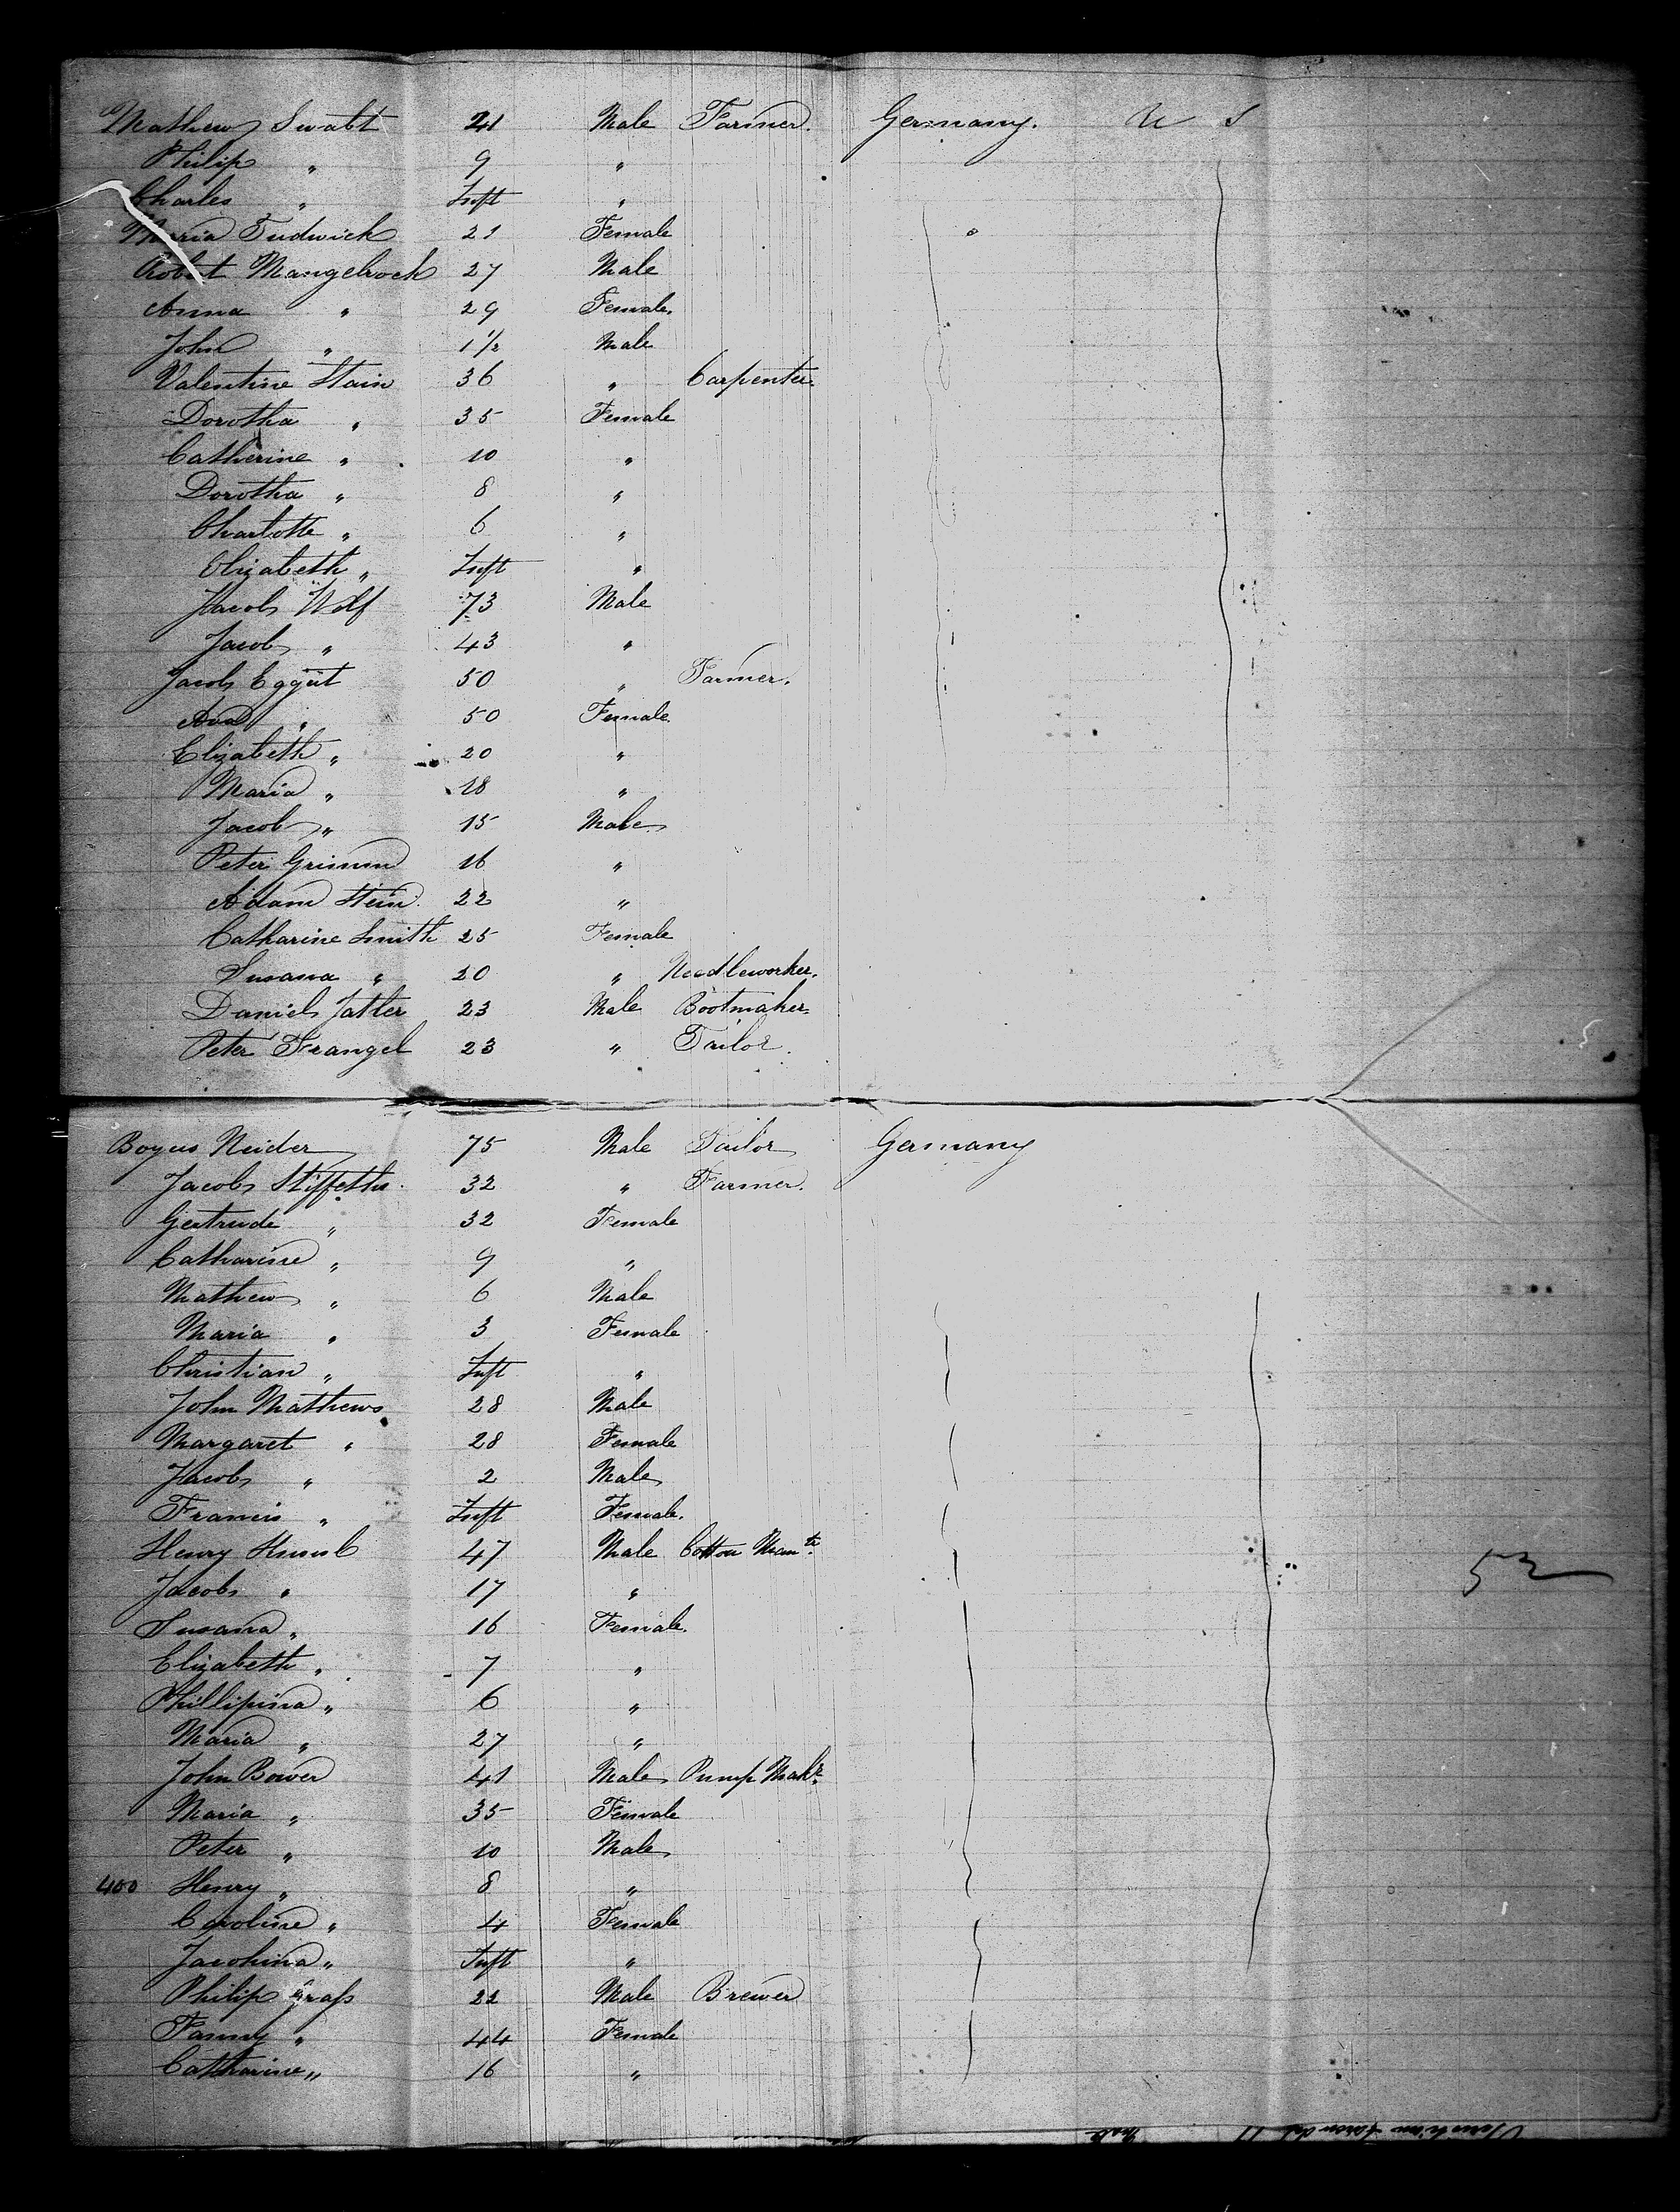 Mathew Swabt 21 Male Farmer. Germany. U S
Philip " 9 "
Charles " Inft "
Maria Tudwick 21 Female
Robert Mangelrock 27 Male
Anna " 29 Female
John " 1 1/2 Male
Valentine Stain 36 " Carpenter
Dorotha " 35 Female
Catherine " 10 "
Dorotha " 8 "
Charlotte " 6 "
Elizabeth " Inft "
Jacob Wolf 73 Male
Jacob " 43 "
Jacob Eggut 50 " Farmer.
" 50 Female
Elizabeth " 20 "
Maria " 18 "
Jacob " 15 Male
Peter Grimm 16 "
Adam Stein 22 "
Catharine Smith 25 Female
Susana " 20 " Needleworker.
Daniel Jatter 23 Male Bootmaker
Peter Frangel 23 " Tailor.
Boyus Neider 75 Male Tailor Germany
Jacob 32 " Farmer.
Gertrude " 32 Female
Catharine " 9 "
Mathew " 6 Male
Maria " 3 Female
Christian " Inft "
John Mathews 28 Male
Margaret " 28 Female
Jacob " 2 Male
Francis " Inft Female.
Henry 47 Male Cotton 52
Jacob " 17 "
Susana " 16 Female.
Elizabeth " 7 "
Phillipina " 6 "
Maria " 27 "
John Bower 41 Male Pump Makr
Maria " 35 Female
Peter " 10 Male
400 Henry " 8 "
Caroline " 4 Female
Jacobina " Inft "
Philip Grass 22 Male Brewer
Fanny " 44 Female
Catharine " 16 "